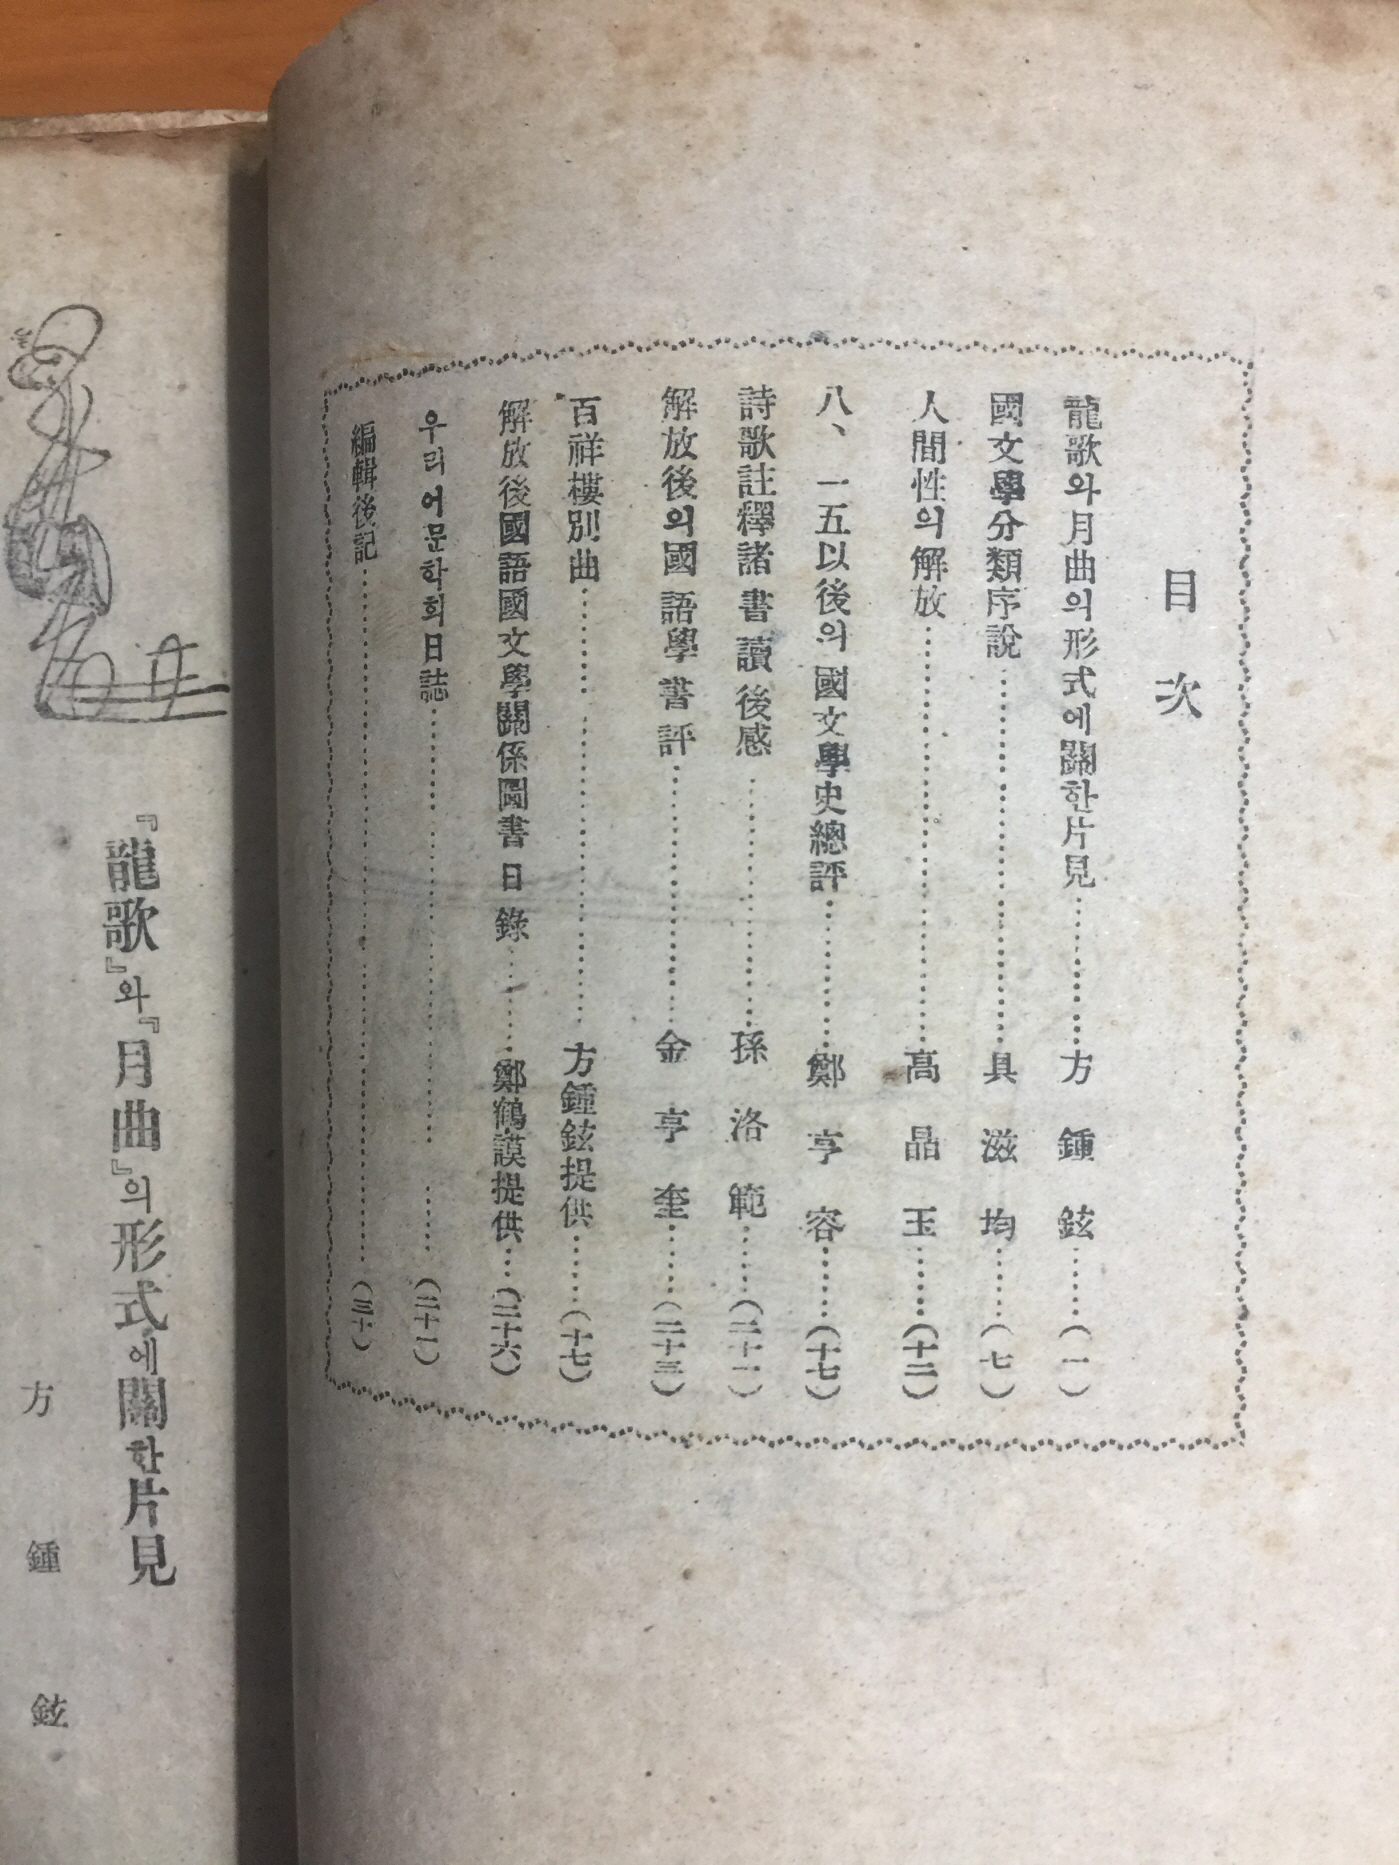 目次
龍歌와月曲의形式에關한片見……方鍾鉉……(一)
國文學分類序說……具滋均……(七)
人間性의解放……高晶玉……(十二)
八、一五以後의國文學史總評……鄭亨容……(十七)
詩歌註釋諸書讀後感……孫洛範……(二十一)
解放後의國語學書評……金亨奎……(二十三)
百祥樓別曲……方鍾鉉提供……(十七)
解放後國語國文學關係圖書目錄……鄭鶴謨提供……(二十六)
우리어문학회日誌……(二十一)
編輯後記……(三十)
『龍歌』와『月曲』의形式에關한片見
方鍾鉉